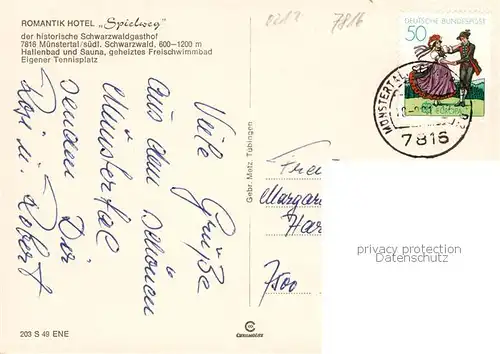 ROMANTIK HOTEL „Spielweg"
der historische Schwarzwaldgasthof
7816 Münstertal/südl. Schwarzwald, 600–1200 m
Hallenbad und Sauna, geheiztes Freischwimmbad
Eigener Tennisplatz
7816
DEUTSCHE BUNDESPOST
50
EUROPA
MÜNSTERTAL
7816
Viele Grüße
aus dem schönen
Münstertal
senden Dir
Rosi u. Robert
Gebr. Metz, Tübingen
Margar
Har
7500
privacy protection
Datenschutz
203 S 49 ENE